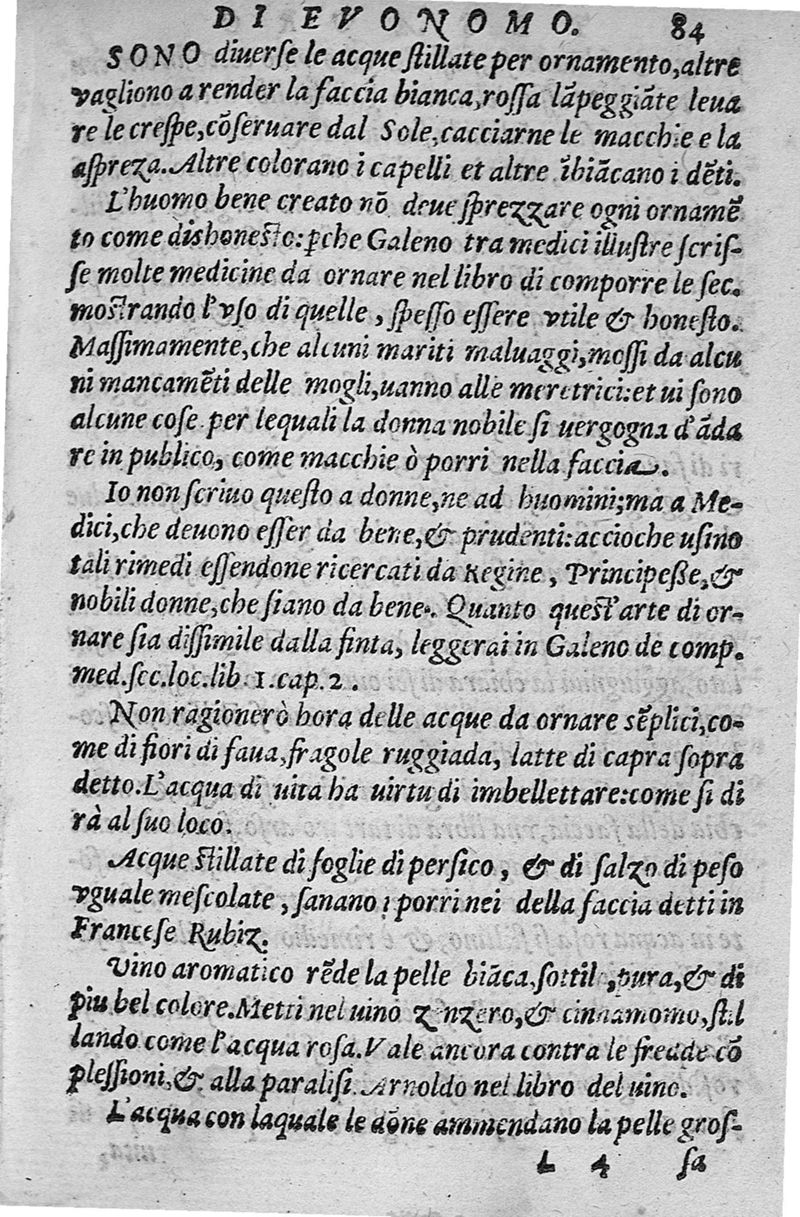 DI EVONOMO. 84
SONO diuerſe le acque ſtillate per ornamento,altre
vagliono a render la faccia bianca,roſſa lãpeggiãte leua
re le creſpe,cõſeruare dal Sole,cacciarne le macchie e la
aſpreza.Altre colorano i capelli et altre ĩbiãcano i dẽti.
L'huomo bene creato nõ deue ſprezzare ogni ornamẽ
to come dishoneſto:ꝑche Galeno tra medici illuſtre ſcriſ-
ſe molte medicine da ornare nel libro di comporre le ſec.
moſtrando l'vſo di quelle, ſpeſſo eſſere vtile & honeſto.
Maſſimamente,che alcuni mariti maluaggi,moſſi da alcu
ni mancamẽti delle mogli,uanno alle meretrici:et ui ſono
alcune coſe per lequali la donna nobile ſi uergogna d'ãda
re in publico, come macchie ò porri nella faccia.
Io non ſcriuo queſto a donne,ne ad huomini;ma a Me-
dici,che deuono eſſer da bene,& prudenti:accioche uſino
tali rimedi eſſendone ricercati da Regine, Principeße,&
nobili donne,che ſiano da bene. Quanto queſt'arte di or-
nare ſia diſſimile dalla finta, leggerai in Galeno de comp.
med.ſec.loc.lib.1.cap.2.
Non ragionerò hora delle acque da ornare sẽplici,co-
me di fiori di faua,fragole ruggiada, latte di capra ſopra
detto.L'acqua di uita ha uirtu di imbellettare:come ſi di
rà al ſuo loco.
Acque ſtillate di foglie di perſico, & di ſalzo di peſo
vguale meſcolate, ſanano i porri nei della faccia detti in
Franceſe Rubiz.
Vino aromatico rẽde la pelle biãca.ſottil ,pura,& di
piu bel colore.Metti nel uino zenzero,& cinnamomo,ſtil
lando come l'acqua roſa.Vale ancora contra le fredde cõ
pleſſioni,& alla paraliſi. Arnoldo nel libro del uino.
L'acqua con laquale le dõne ammendano la pelle groſ-
L 4 ſa